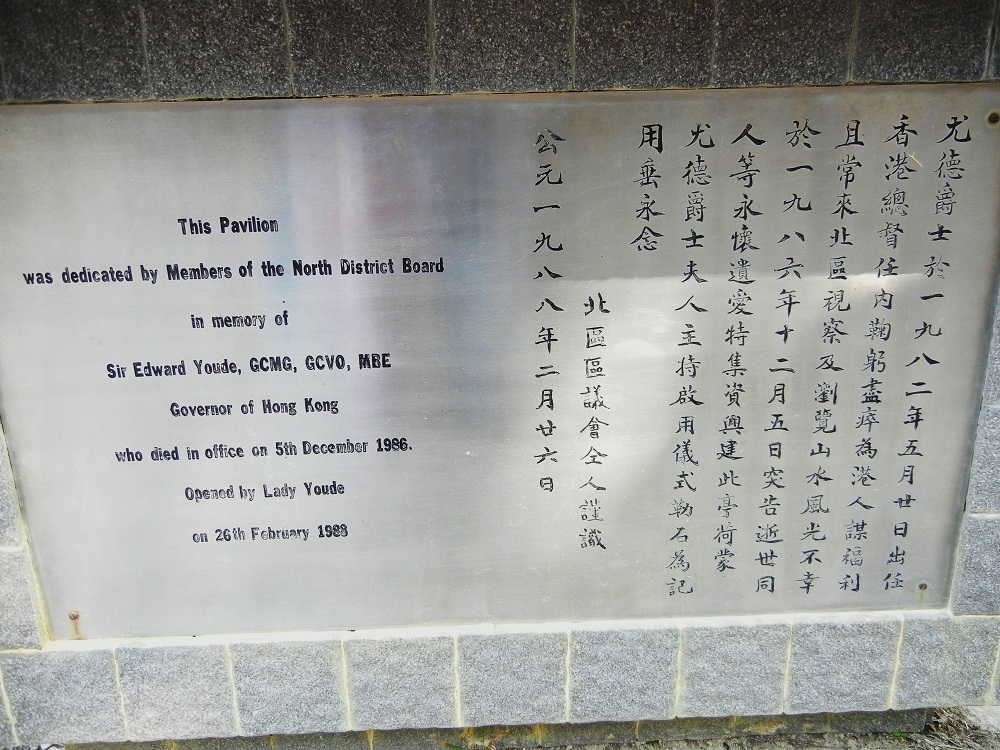 This Pavilion
was dedicated by Members of the North District Board
in memory of
Sir Edward Youde, GCMG, GCVO, MBE
Governor of Hong Kong
who died in office on 5th December 1986.
Opened by Lady Youde
on 26th February 1988
尤德爵士於一九八二年五月廿日出任
香港總督任內鞠躬盡瘁為港人謀福利
且常來北區視察及瀏覽山水風光不幸
於一九八六年十二月五日突告逝世同
人等永懷遺愛特集資興建此亭荷蒙
尤德爵士夫人主持啟用儀式勒石為記
用垂永念
北區區議會仝人謹識
公元一九八八年二月廿六日